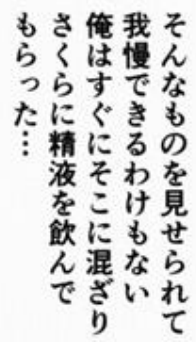 そんなものを見せられて
我慢できるわけもない
俺はすぐにそこに混ざり
さくらに精液を飲んで
もらった…